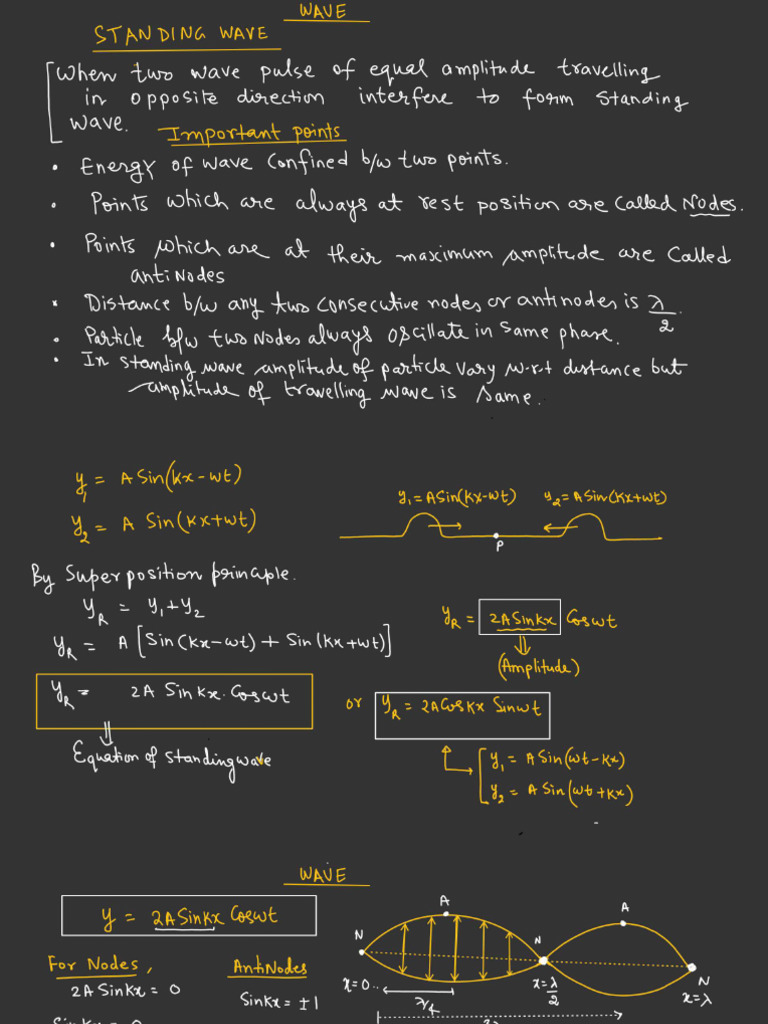 WAVE
STANDING WAVE
When two wave pulse of equal amplitude travelling
in opposite direction interfere to form standing
wave.
Important points
• Energy of wave confined b/w two points.
• Points which are always at rest position are called Nodes.
• Points which are at their maximum amplitude are called
antiNodes
• Distance b/w any two consecutive nodes or antinodes is λ/2.
• Particle b/w two nodes always oscillate in same phase.
• In standing wave amplitude of particle vary w.r.t distance but
amplitude of travelling wave is same.
y₁ = A Sin(kx-wt)
y₂ = A Sin(kx+wt)
y₁=ASin(kx-wt) y₂=ASin(kx+wt)
P
By Superposition principle.
y_R = y₁+y₂
y_R = A[Sin(kx-wt) + Sin(kx+wt)]
y_R = 2A Sinkx.Coswt
Equation of standing wave
y_R = 2ASinkx Coswt
(Amplitude)
or y_R = 2ACoskx Sinwt
y₁ = ASin(wt-kx)
y₂ = ASin(wt+kx)
WAVE
y = 2ASinkx Coswt
For Nodes,
2ASinkx = 0
AntiNodes
Sinkx = ±1
A A
N N N
x=0.. x=λ/2 x=λ
λ/4